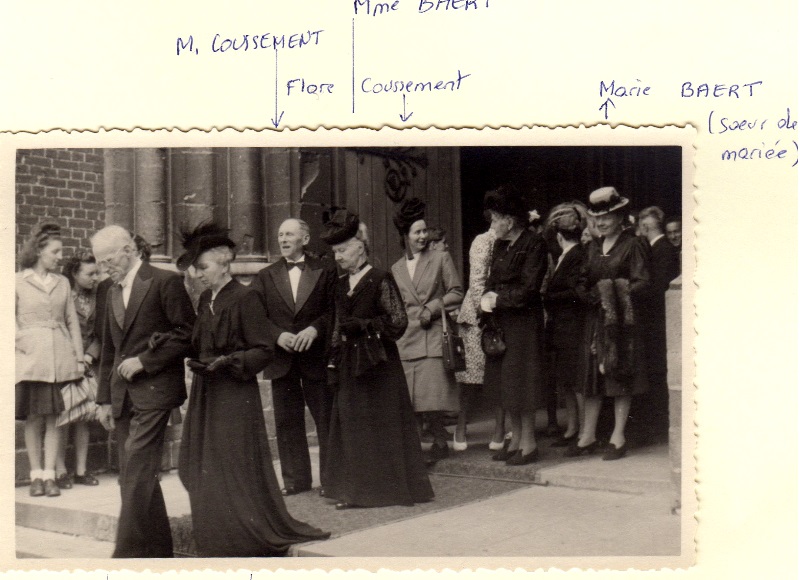 Mme BAERT
M. COUSSEMENT
Flore Coussement
Marie BAERT
(soeur de
mariée)